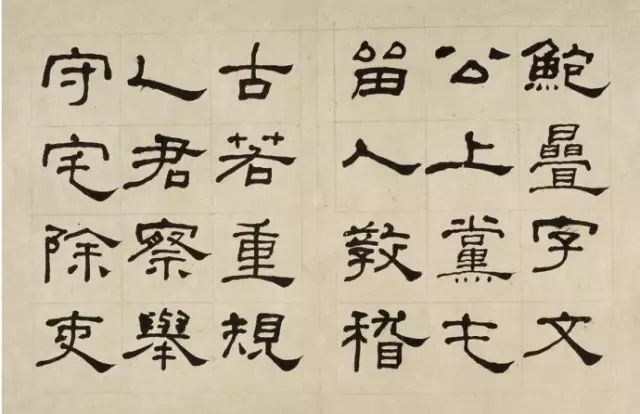 鮑疊字文
公上黨屯
留人教稽
古若重規
乙君察舉
守宅除吏